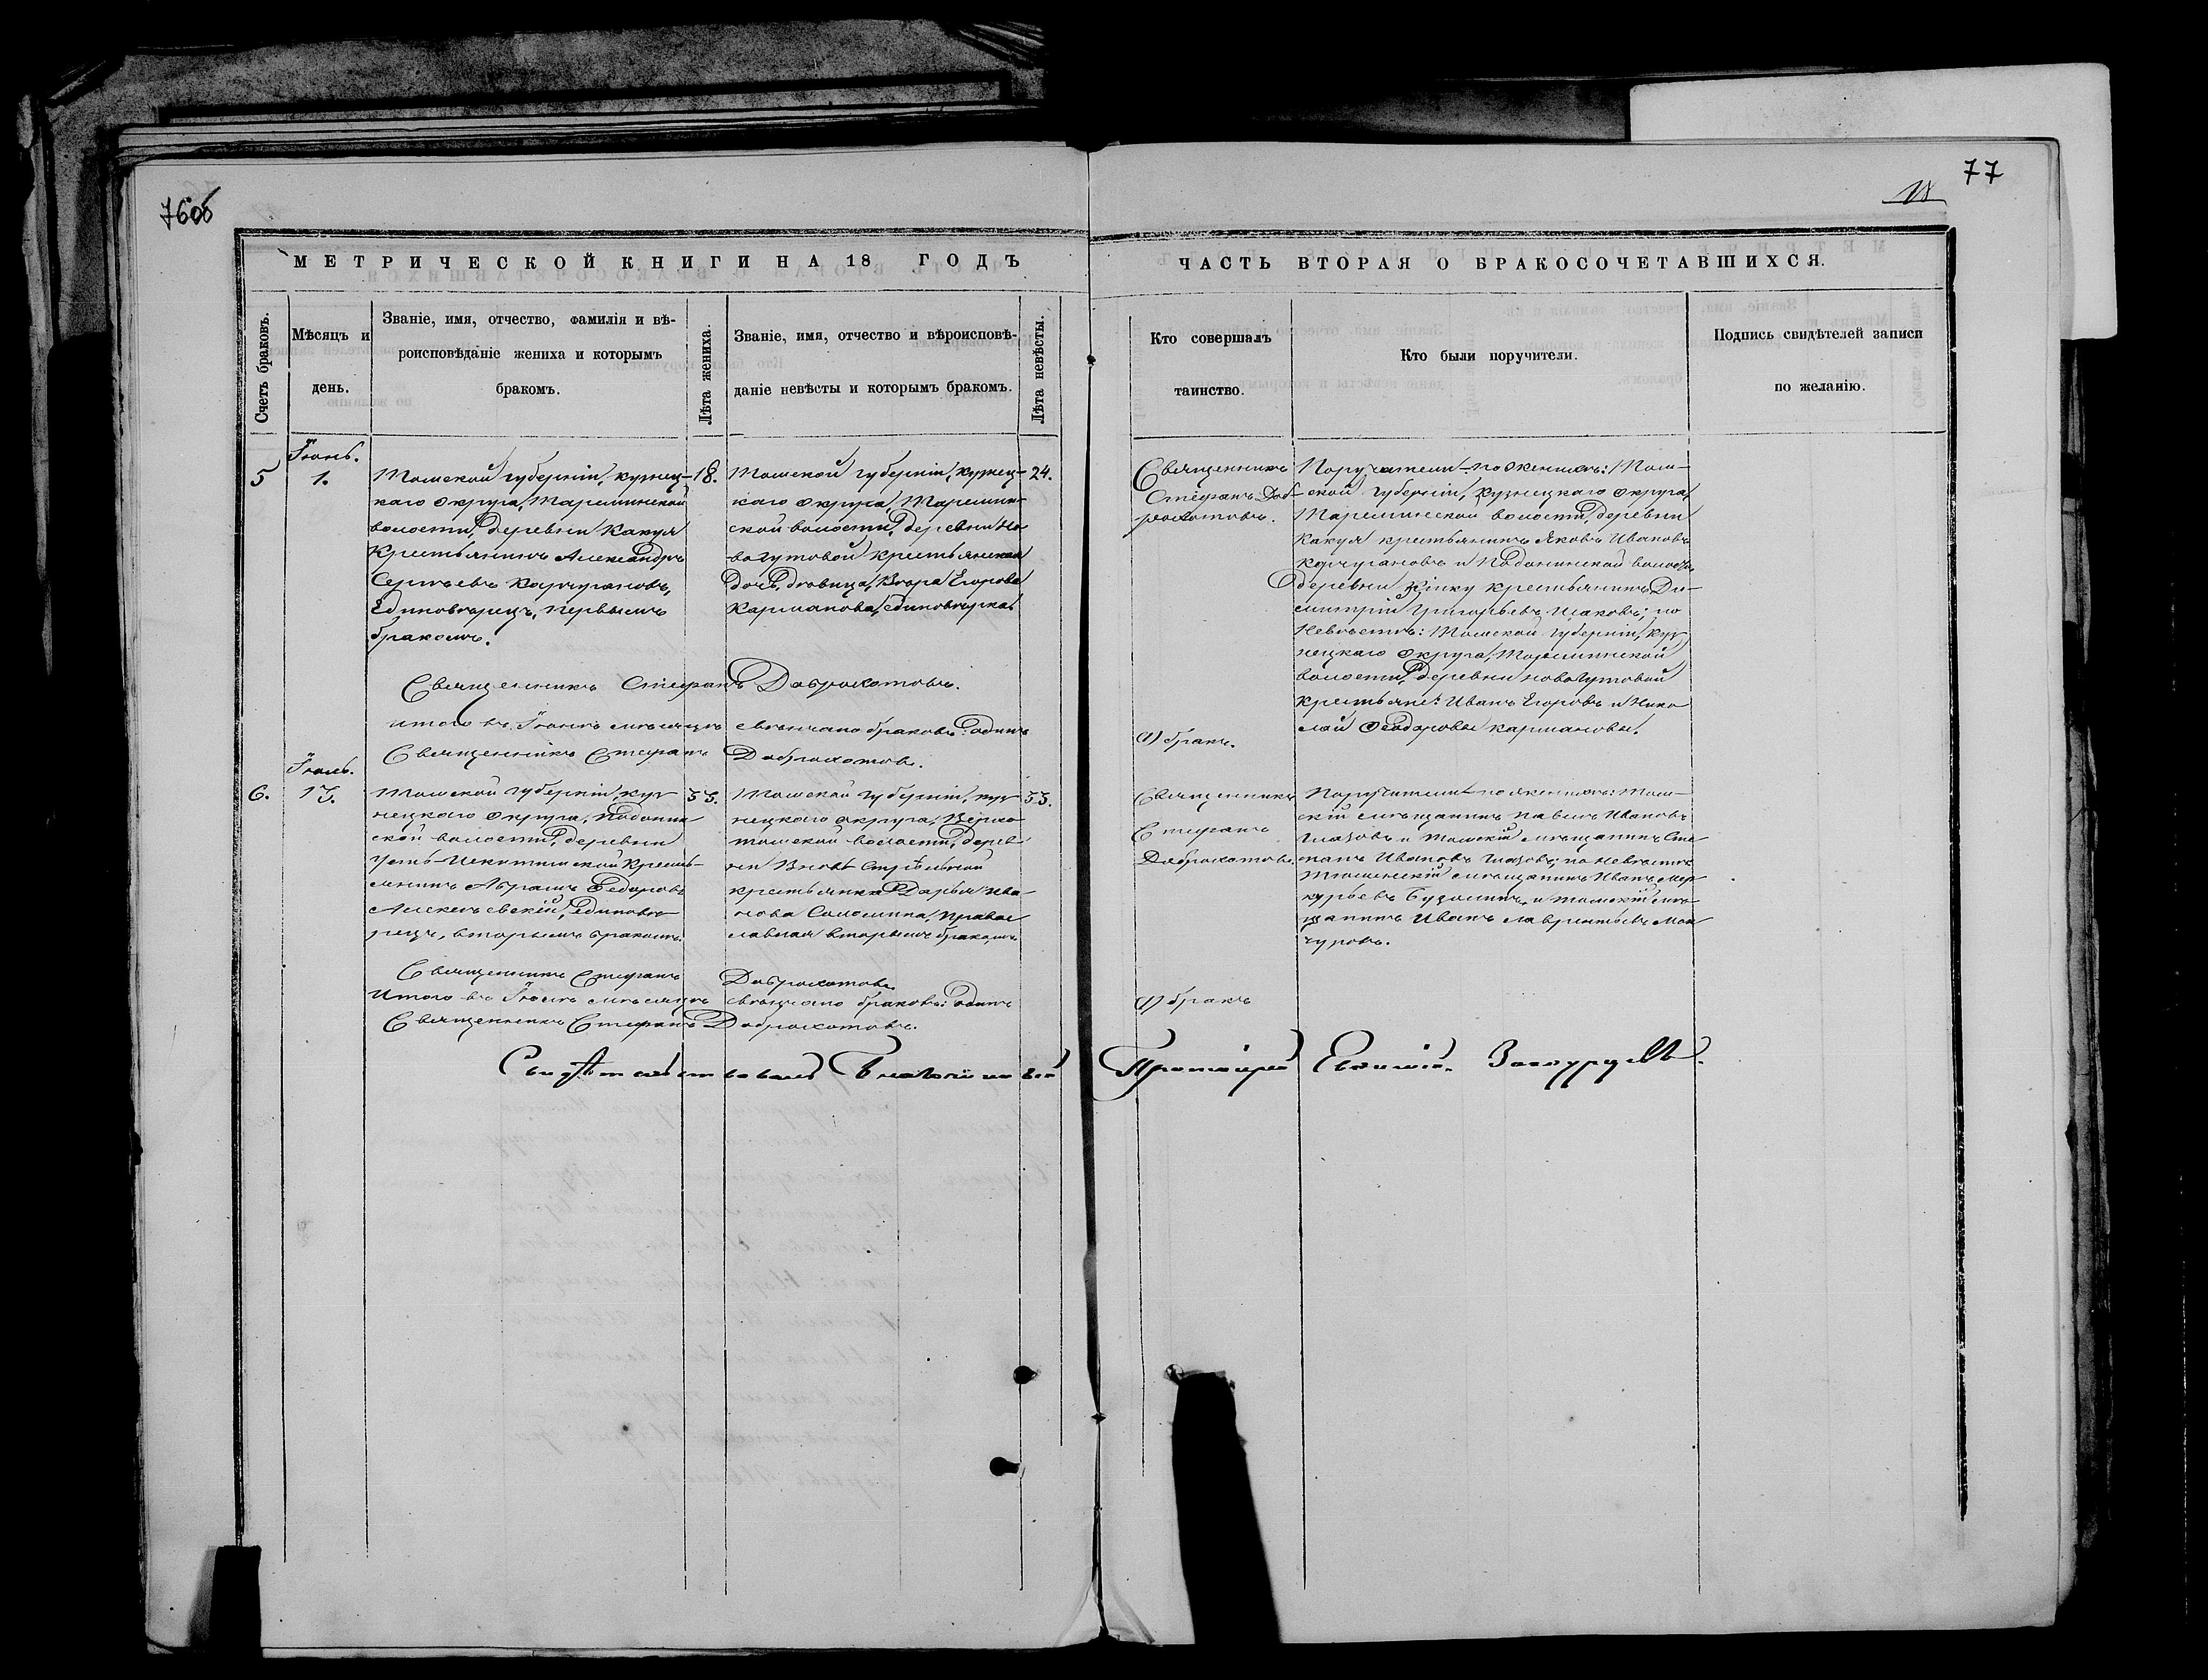 76об
77
МЕТРИЧЕСКОЙ КНИГИ НА 18 ГОДЪ
ЧАСТЬ ВТОРАЯ О БРАКОСОЧЕТАВШИХСЯ.
Счетъ браковъ.
Мѣсяцъ и
день.
Званіе, имя, отчество, фамилія и вѣ-
роисповѣданіе жениха и которымъ
бракомъ.
Лѣта жениха.
Званіе, имя, отчество и вѣроисповѣ-
даніе невѣсты и которымъ бракомъ.
Лѣта невѣсты.
Кто совершалъ
таинство.
Кто были поручители.
Подпись свидѣтелей записи
по желанію.
5
Іюнь.
1.
Томской губерніи, кузнец-
каго округа, Тарсминской
волости, деревни Какуя
Крестьянинъ Александръ
Сергѣевъ Корчугановъ,
Единовѣрецъ, первымъ
бракомъ.
18.
Томской губерніи, кузнец-
каго округа, Тарсмин-
ской волости, деревни Но
вогутовой крестьянская
дочь, дѣвица,
Карманова, единовѣрка
24.
Священникъ
Стефанъ Доб-
рохотовъ.
Поручители по женихѣ: Том-
ской губерніи, Кузнецкаго округа,
Тарсминской волости, деревни
Какуя крестьянинъ Яковъ Ивановъ
Корчугановъ и
деревни крестьянинъ Ди-
митрій Григорьевъ по
Невѣстѣ: Томской губерніи, куз
нецкаго округа, Тарсминской
волости, деревни новогутовой
крестьяне: Иванъ Егоровъ и Нико
лай Ѳеодоровы Кармановы.
Священникъ Стефанъ Доброхотовъ.
Итого въ Іюнѣ мѣсяцѣ свѣнчано браковъ: одинъ
(1) бракъ.
Священникъ Стефанъ Доброхотовъ.
6.
Іюль.
13.
Томской губерніи, куз
нецкаго округа,
ской волости, деревни
Усть-Искитимской Кресть-
янинъ Абрамъ Федоровъ
Алексѣевскій, единовѣ
рецъ, вторымъ бракомъ.
53.
Томской губерніи, куз
нецкаго округа, Верхо
томской волости, дерев
ни Вновь Стрѣльной
крестьянка Дарья Ива
нова Соломина, Право
славная вторымъ бракомъ
53.
Священникъ
Стефанъ
Доброхотовъ.
Поручители по женихѣ: Том-
скій мѣщанинъ павелъ Ивановъ
Глазовъ и томскій мѣщанинъ Сте
панъ Ивановъ Глазовъ; по невѣстѣ
мѣщанинъ Иванъ Мер
курьевъ и томскій мѣ
щанинъ Иванъ Лаврентьевъ
Священникъ Стефанъ Доброхотовъ
Итого въ Іюлѣ мѣсяцѣ свѣнчано браковъ: одинъ
(1) бракъ
Священникъ Стефанъ Доброхотовъ.
Свидѣтельствовалъ Благочинный Протоіерей